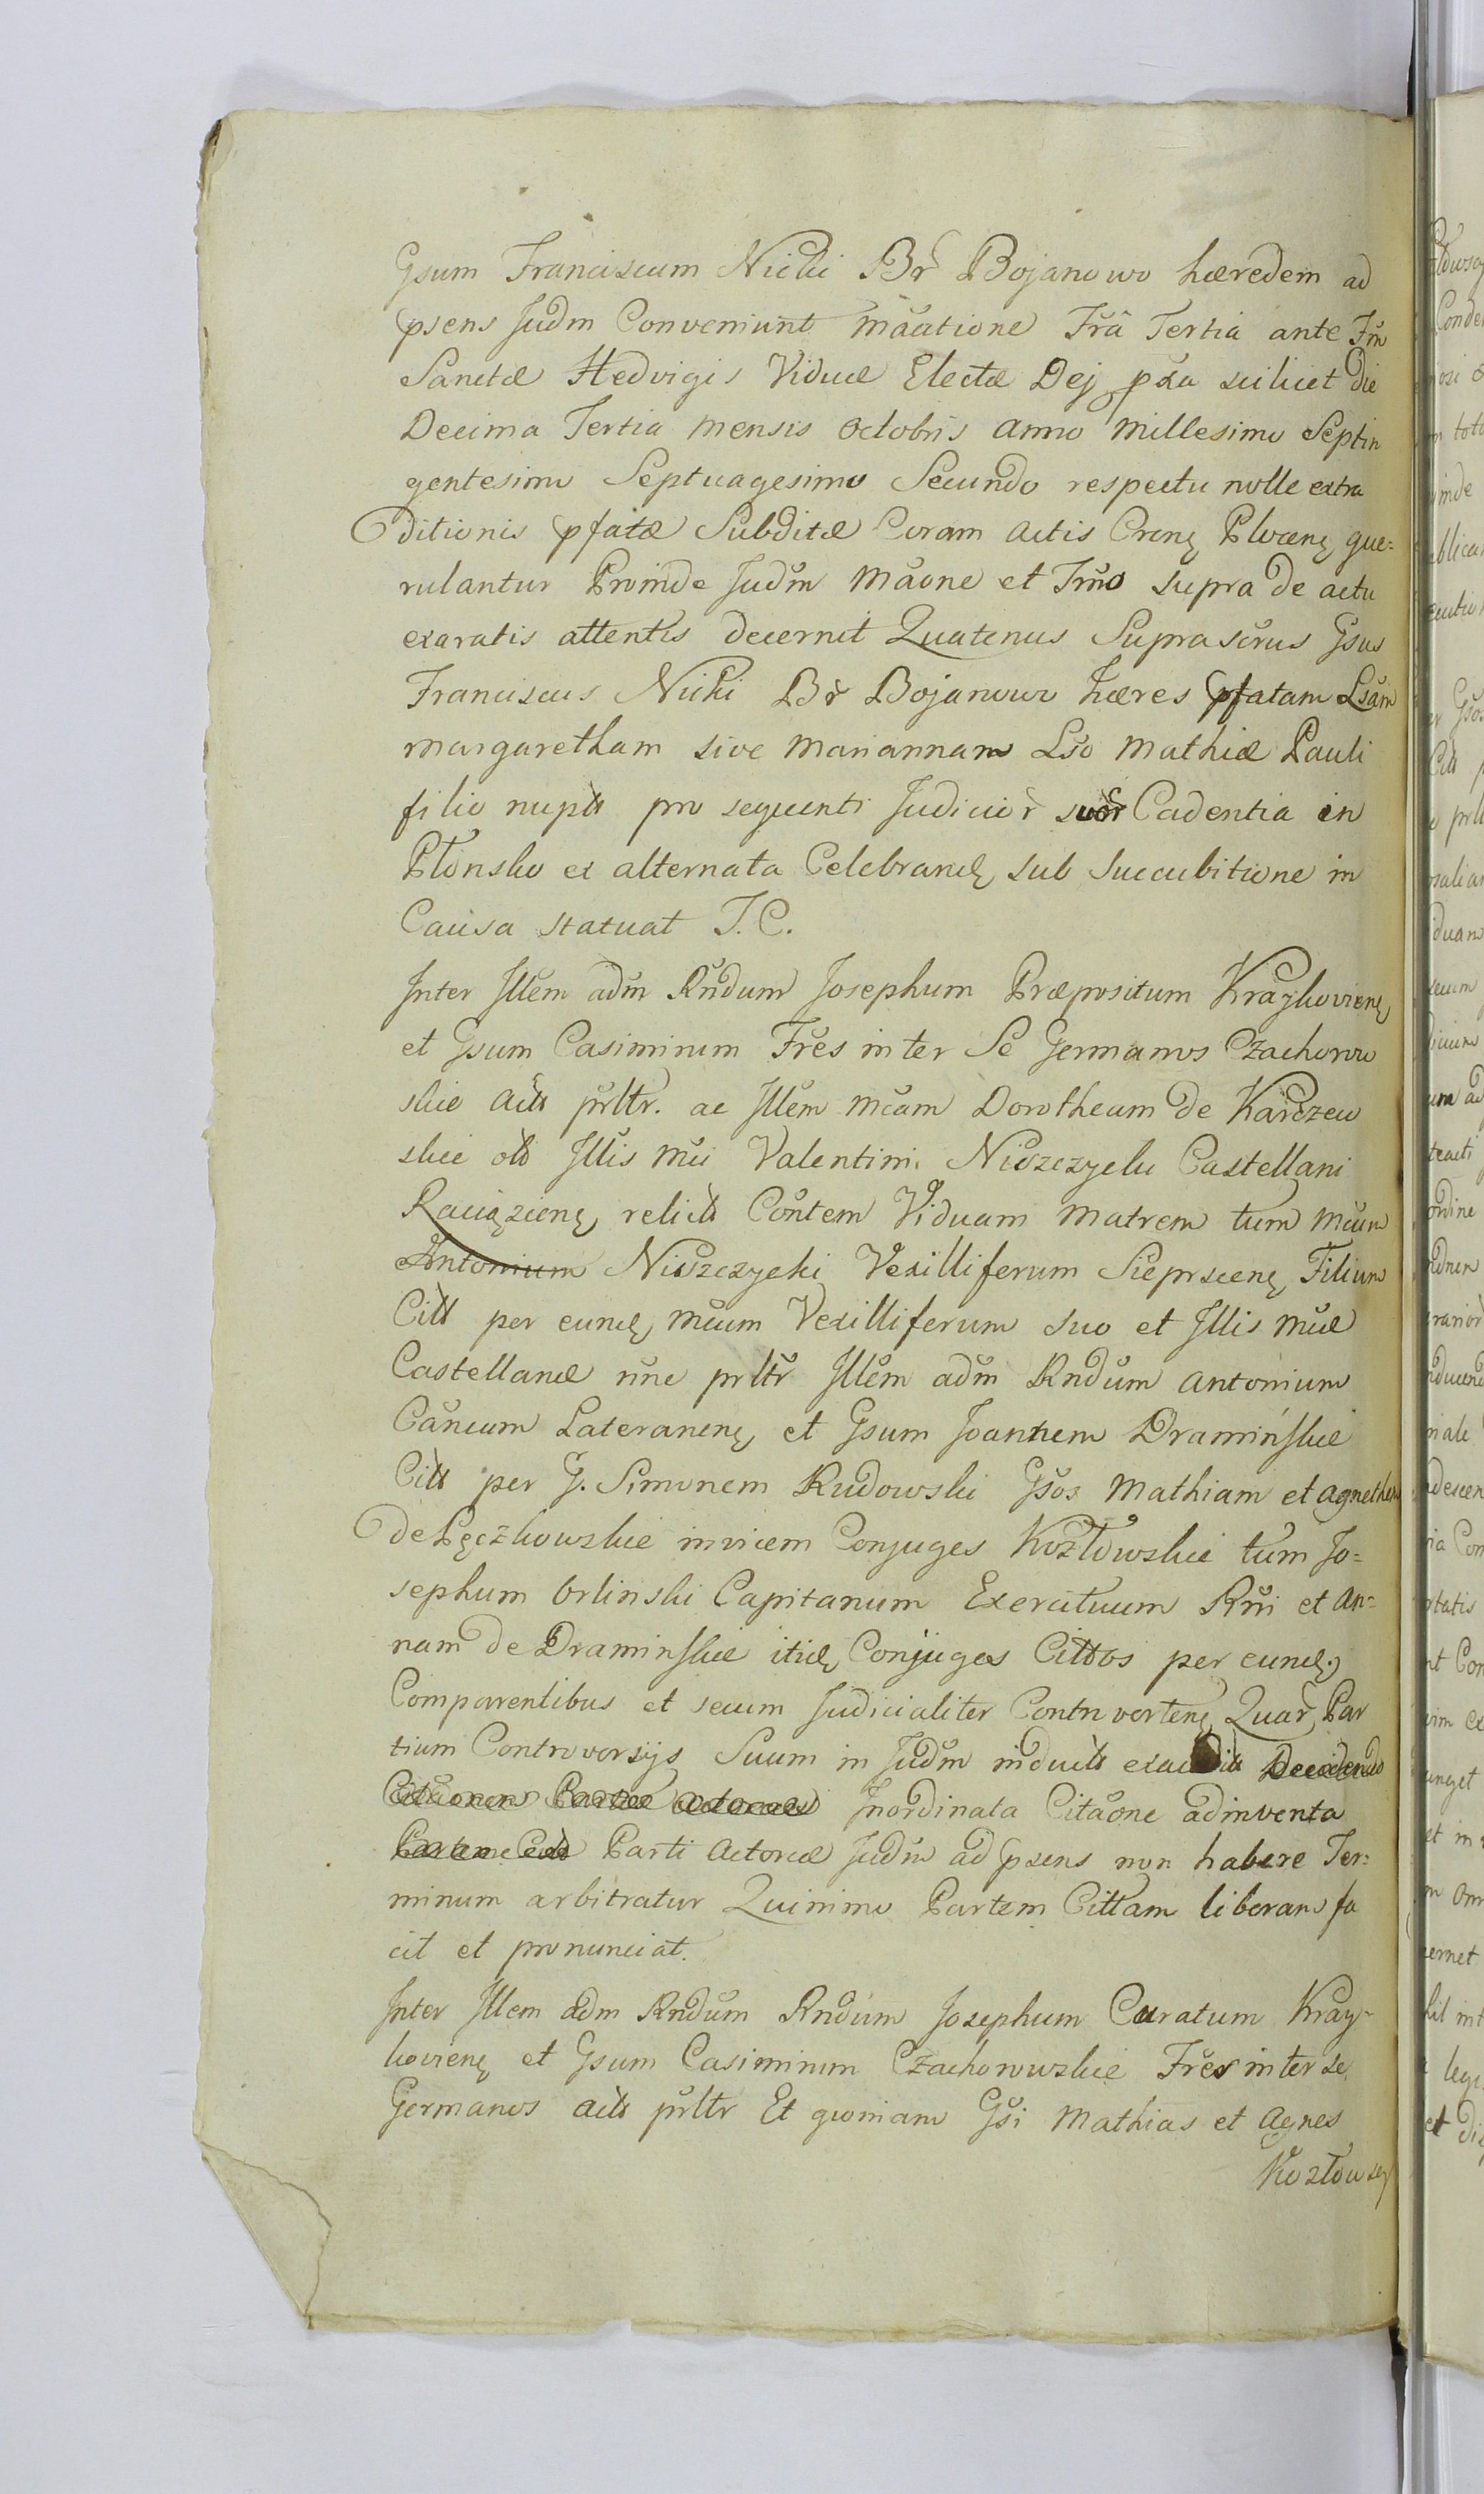 Gsum Franciscum Nicki Br̃ Bojanowo hæredem ad
psens Judm Conveniunt mãatione Frã Tertia ante Frm
Sanctæ Hedvigis Viduæ Electæ Dej pxa scilicet die
Decima Tertia mensis octobris anno millesimo Septin
gentesimo Septuagesimo Secundo respectu nolle extra
ditionis pfatæ Subditæ Coram actis Crenę Plocenę que=
rulantur Proinde Judm mãone et Trmo supra de actu
exaratis attentis decernit Quatenus Suprascrus Gsus
Franciscus Nicki Br̃ Bojanowo hæres pfatam Lsam
margaretham sive mariannam Lso mathiæ Pauli
filio nuptt pro sequenti Judicior̃ suor̃ Cadentia in
Płonsko ex alternata Celebrandę sub succubitione in
Causa statuat T. C.
Inter Illem adm Rndum Josephum Præpositum Kraykovienę
et Gsum Casimirum Fres inter Se Germanos Czachorow
skie actt prltr. ac Illem mcam Dorotheam de Karczew
skie olt Illis mci Valentini Niszczycki Castellani
Raciązienę relictt Contem Viduam matrem tum mcum
Antonium Niszczycki Vexilliferum Sieprscenę Filium
Citt per eundę mcum Vexilliferum suo et Illis mcæ
Castellanæ nne prltr Illem adm Rndum antonium
Cãncum Lateranenę et Gsum Joannem Dramińskie
Citt per G. Simonem Rudowski Gsos mathiam et agnethem
de Pęczkowskie invicem Conjuges Kozłowskie tum Jo=
sephum Orlinski Capitanum Exercituum Rni et an=
nam de Draminskie itidę Conjuges Cittos per eundę
Comparentibus et secum Judicialiter Controvertenę Quar̃ Par
tium Controversijs Suum in Judm inductt exauditt Decidendo
Citãonem Partis actoreæ Inordinata Citãone adinventa
Partem Citt Parti actoreæ Judm ad psens non habere Ter=
minum arbitratur Quinimo Partem Cittam liberam fa
cit et pronunciat.
Inter Illem adm Rndum Rndum Josephum Curatum Kray-
kovienę et Gsum Casimirum Czachorowskie Fres inter se
Germanos actt prltr Et quoniam Gsi mathias et Agnes
Kozłowscy